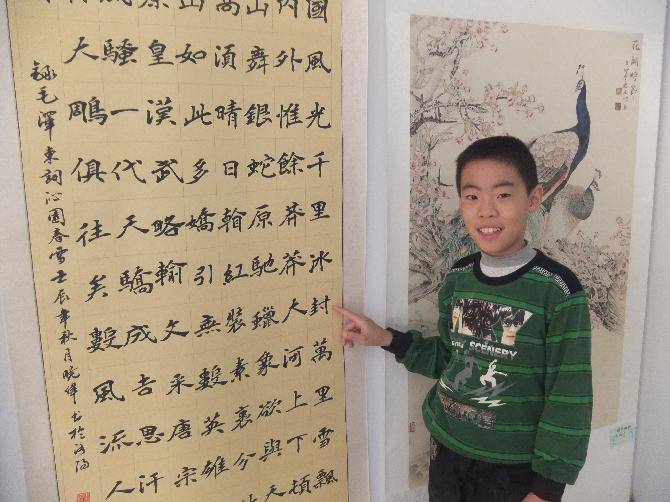 國風光千里冰封萬里雪飄
内外惟餘莽莽大河上下頓
山舞銀蛇原馳蠟象欲與天
須晴日看紅裝素裹今
山如此多嬌引無數英雄
皇漢武略輸文采唐宗
騷一代天驕成吉思汗
大鵰俱往矣數風流人
錄毛澤東詞沁園春雪壬辰年秋月曉偉書於洛陽
SCENERY